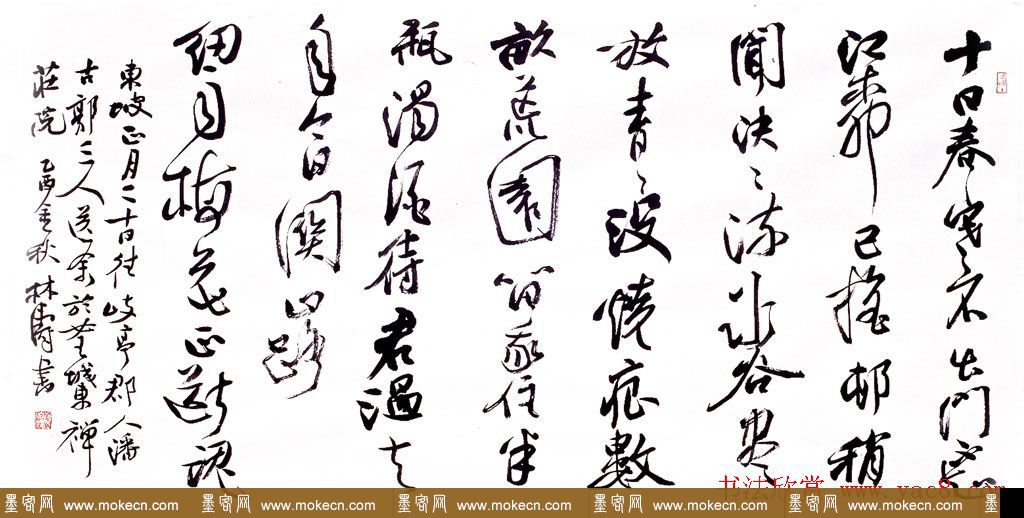 十日春寒不出門不知
江柳已搖邨稍
聞決〻流冰谷盡
放青〻沒燒痕數
畝荒園留我住半
瓶濁酒待君溫去
年今日關山路
細雨梅花正斷魂
東坡正月二十日往岐亭郡人潘
古郭三人送余於女王城東禪
莊院 乙酉金秋 林濤書
书法欣赏 www.yac8.com
墨客网 www.mokecn.com 墨客网 www.mokecn.com 墨客网 www.mokecn.com 墨客网 www.mokecn.com 墨客网 www.mokecn.com